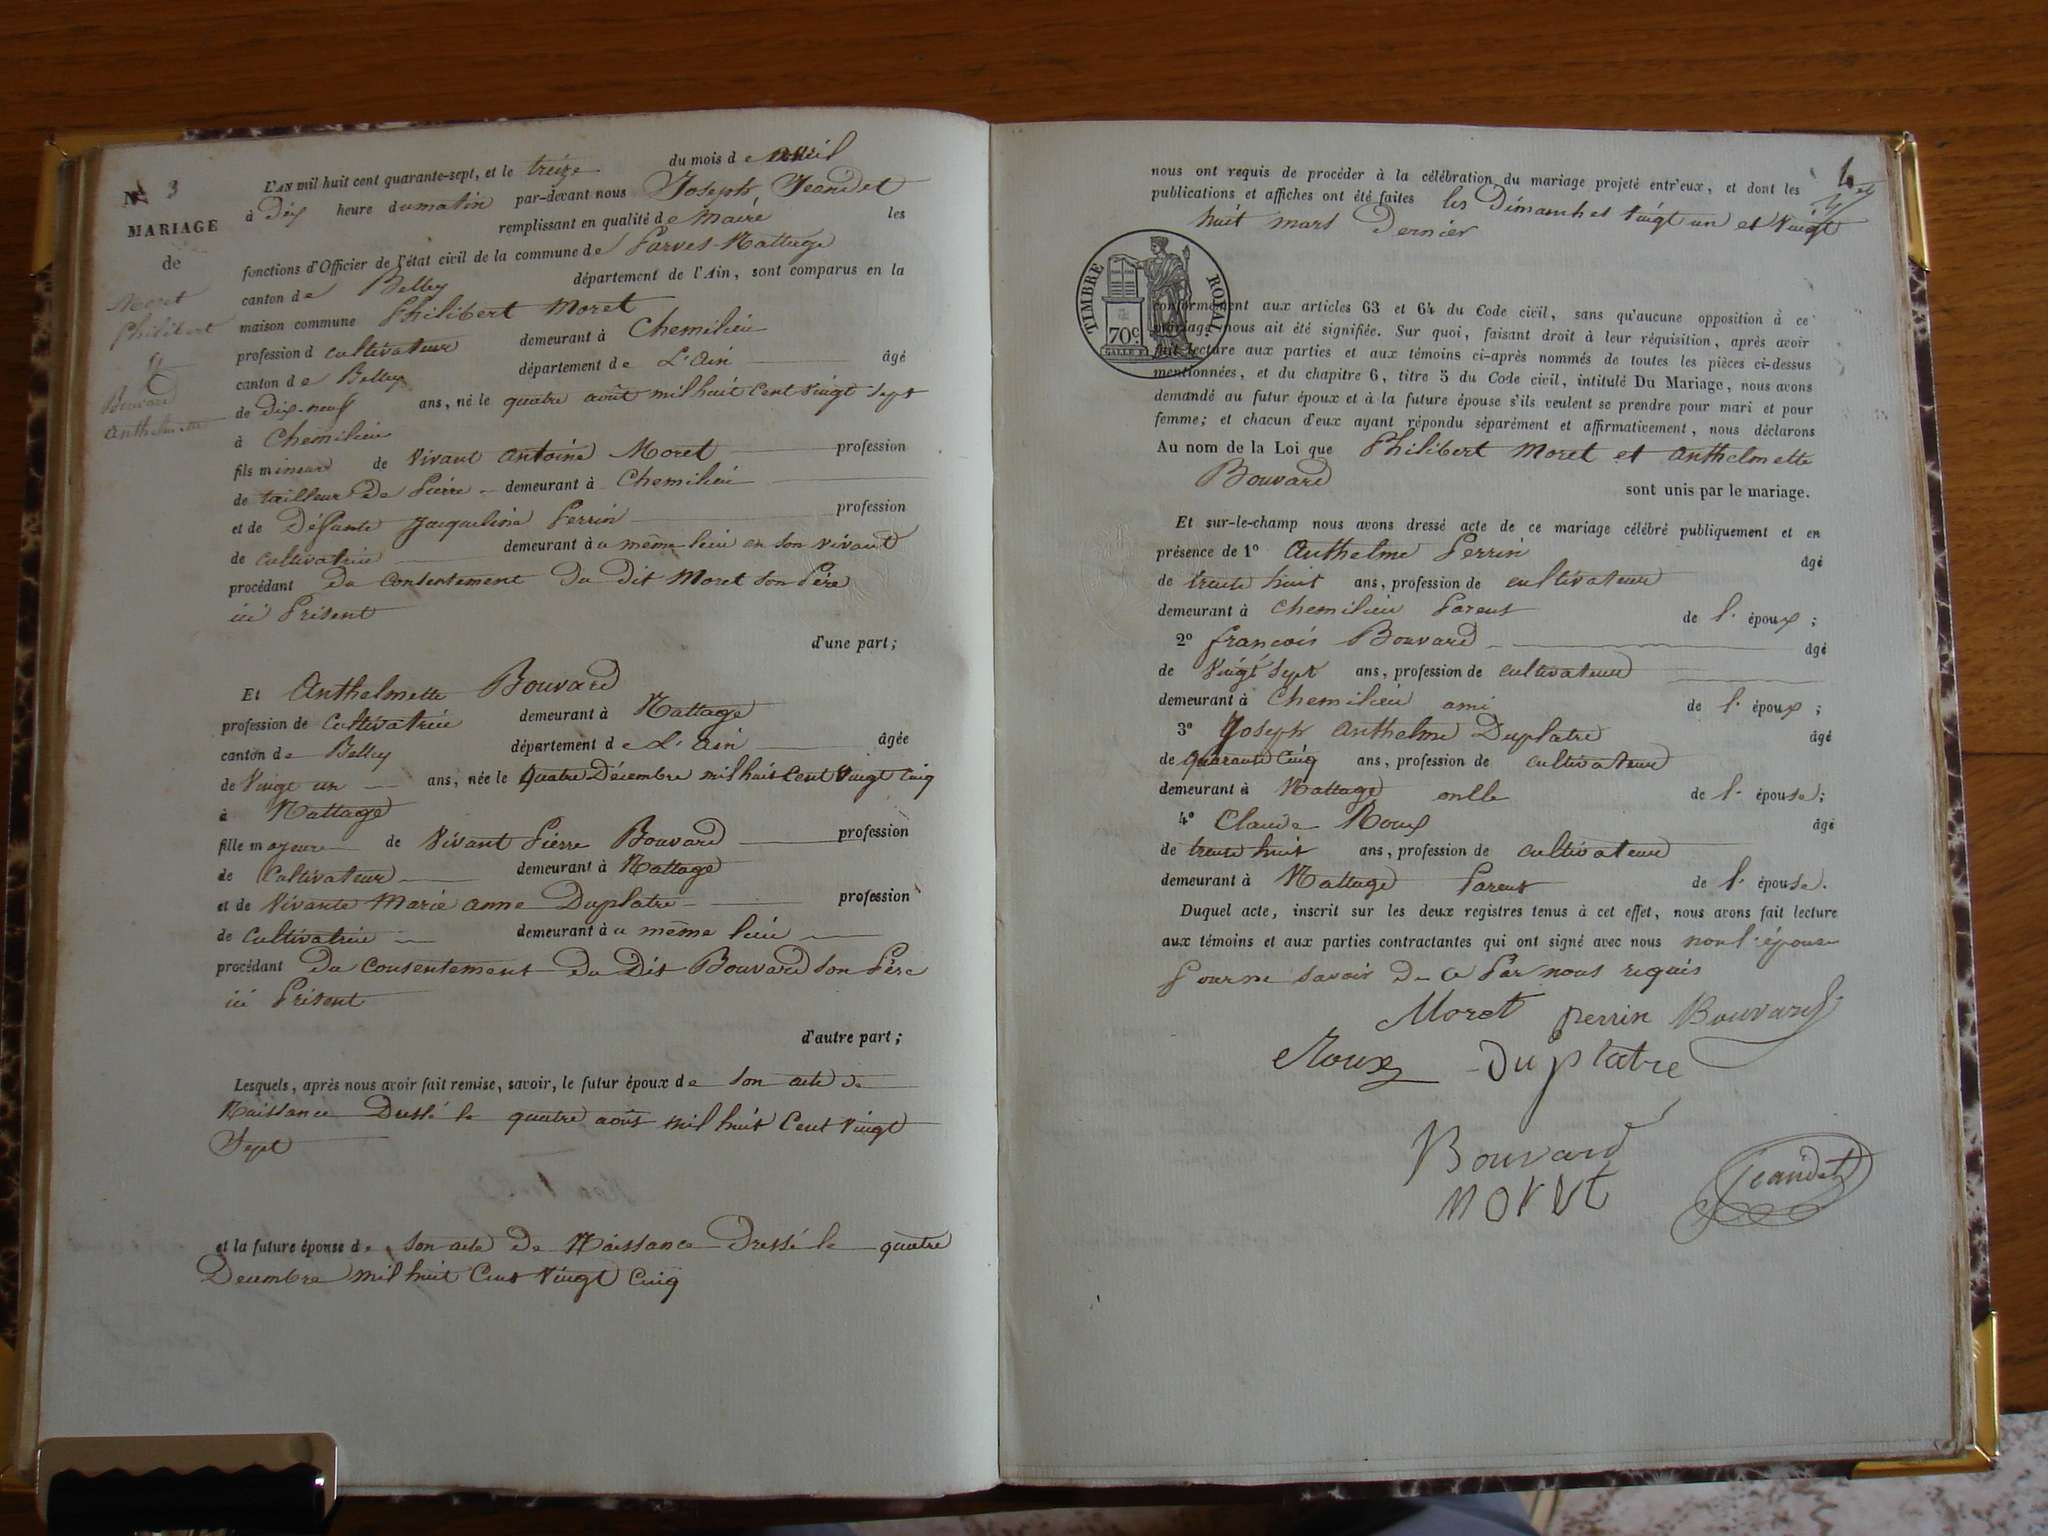 N° 3
MARIAGE
de
Moret
Philibert
&
Bouvard
Anthelmette
L'AN mil huit cent quarante-sept, et le treize du mois de avril
à Dix heure du matin par-devant nous Joseph Jeandet
remplissant en qualité de Maire les
fonctions d'Officier de l'état civil de la commune de Parves-Nattage
canton de Belley département de l'Ain, sont comparus en la
maison commune Philibert Moret
profession d cultivateur demeurant à Chemilieu
canton de Belley département de L'Ain âgé
de Dix-neuf ans, né le quatre août mil huit Cent Vingt Sept
à Chemilieu
fils mineur de Vivant Antoine Moret profession
de tailleur De Pierre demeurant à Chemilieu
et de Défunte Jacqueline Perrin profession
de cultivatrice demeurant à u même lieu en son vivant
procédant du consentement du dit Moret son Père
ici Présent
d'une part;
Et Anthelmette Bouvard
profession de Cultivatrice demeurant à Nattage
canton de Belley département de L'Ain âgée
de Vingt un ans, née le Quatre Décembre mil huit Cent Vingt Cinq
à Nattage
fille majeure de Vivant Pierre Bouvard profession
de Cultivateur demeurant à Nattage
et de Vivante Marie anne Duplatre profession
de Cultivatrice demeurant à u même lieu
procédant du Consentement du Dit Bouvard Son Père
ici Présent
d'autre part;
Lesquels, après nous avoir fait remise, savoir, le futur époux de Son acte de
Naissance Dressé le quatre août mil huit Cent Vingt
Sept
et la future épouse de Son acte De Naissance Dressé le quatre
Decembre mil huit Cent Vingt Cinq
nous ont requis de procéder à la célébration du mariage projeté entr'eux, et dont les
publications et affiches ont été faites les Dimanches Vingt un et Vingt
huit mars Dernier
TIMBRE ROYAL
70c.
conformément aux articles 63 et 64 du Code civil, sans qu'aucune opposition à ce
mariage nous ait été signifiée. Sur quoi, faisant droit à leur réquisition, après avoir
fait lecture aux parties et aux témoins ci-après nommés de toutes les pièces ci-dessus
mentionnées, et du chapitre 6, titre 5 du Code civil, intitulé Du Mariage, nous avons
demandé au futur époux et à la future épouse s'ils veulent se prendre pour mari et pour
femme; et chacun d'eux ayant répondu séparément et affirmativement, nous déclarons
Au nom de la Loi que Philibert Moret et Anthelmette
Bouvard
sont unis par le mariage.
Et sur-le-champ nous avons dressé acte de ce mariage célébré publiquement et en
présence de 1° Anthelme Perrin âgé
de trente huit ans, profession de cultivateur
demeurant à Chemilieu Parent de l'époux;
2° François Bouvard âgé
de Vingt Sept ans, profession de cultivateur
demeurant à Chemilieu ami de l'époux;
3° Joseph Anthelme Duplatre âgé
de Quarante Cinq ans, profession de cultivateur
demeurant à Nattage oncle de l'épouse;
4° Claude Roux âgé
de trente huit ans, profession de cultivateur
demeurant à Nattage Parent de l'épouse.
Duquel acte, inscrit sur les deux registres tenus à cet effet, nous avons fait lecture
aux témoins et aux parties contractantes qui ont signé avec nous non l'épouse
Pour ne savoir De ce Par nous requis
Moret perrin Bouvard
Roux Duplatre
Bouvard
moret
Jeandet